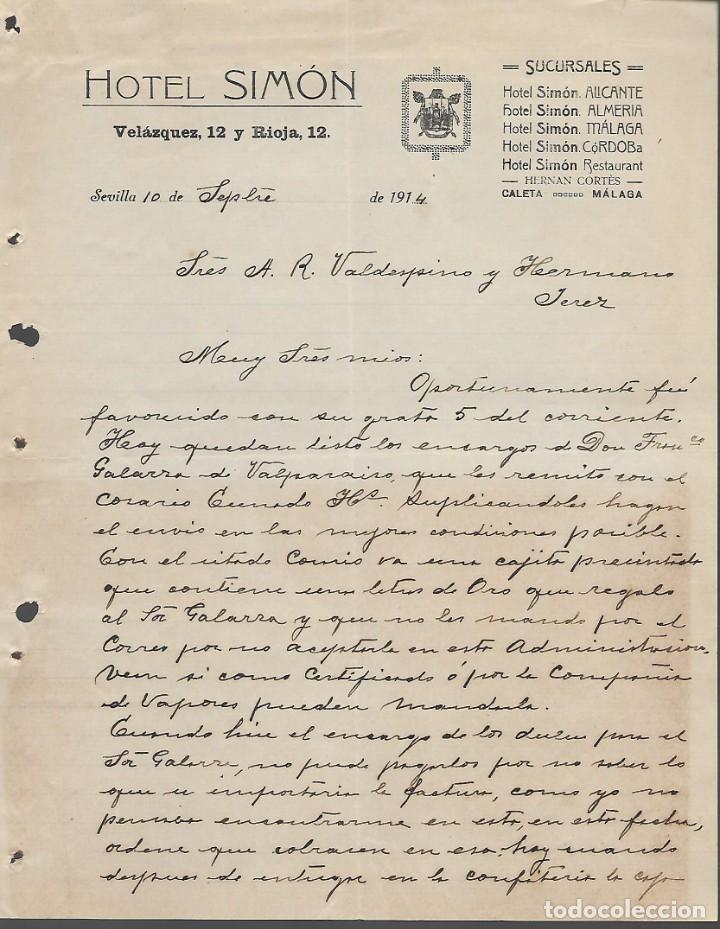 HOTEL SIMÓN
Velázquez, 12 y Rioja, 12.
SUCURSALES
Hotel Simón. ALICANTE
Hotel Simón. ALMERIA
Hotel Simón. MÁLAGA
Hotel Simón. CóRDOBa
Hotel Simón Restaurant
HERNAN CORTÉS
CALETA MÁLAGA
Sevilla 10 de Sepbre de 1914
Sres A. R. Valdespino y Hermano
Jerez
Muy Sres mios:
Oportunamente fuí
favorecido con su grata 5 del corriente.
Hoy quedan listo los encargos de Don Franco
Galarza de Valparaiso, que les remito con el
Cosario Cunado Hs. suplicandoles hagan
el envio en las mejores condiciones posible.
Con el citado Comis va una cajita precintada
que contiene una letras de Oro que regalo
al Sor Galarza y que no les mando por el
Correo por no aceptarla en esta Administracion,
vean si como Certificado ó por la Compañia
de Vapores pueden mandarla.
Cuando hice el encargo de los dulces para el
Sor Galarza, no pude pagarlos por no saber lo
que importaria la factura, como yo no
pensaba encontrarme en esta, en esta fecha,
ordene que cobrasen en esa: hoy cuando
despues de entregar en la confiteria la caja
todocoleccion
todocoleccion.net